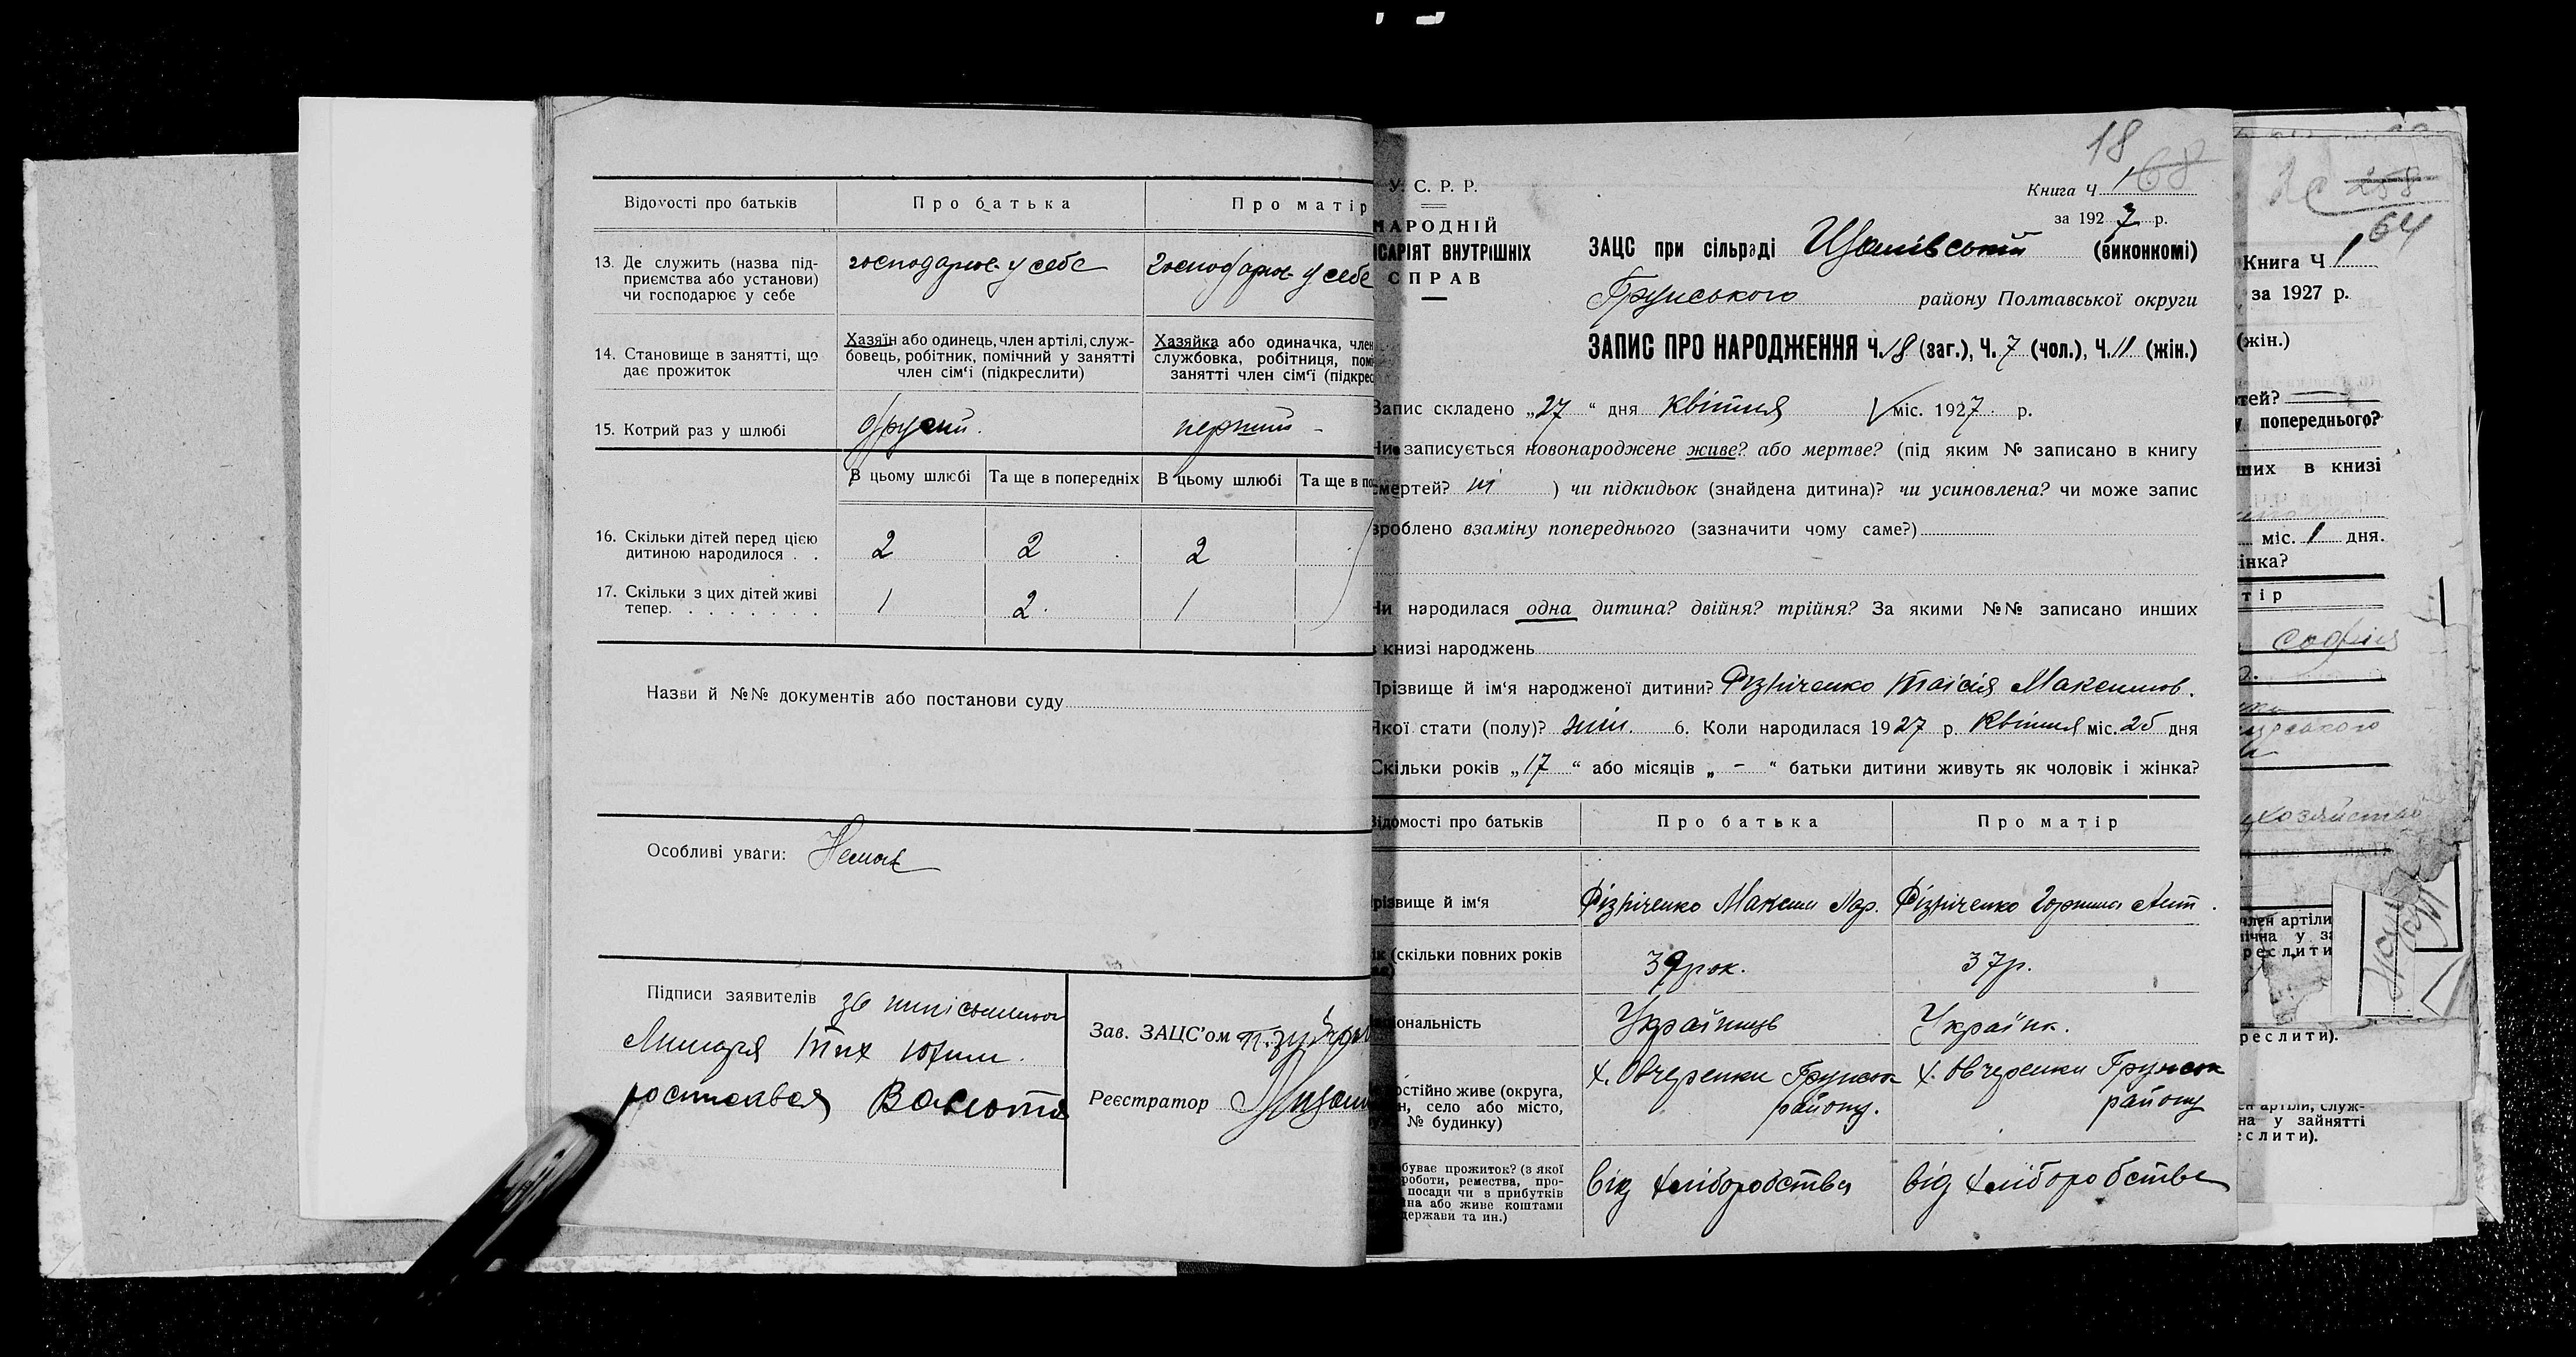 Відомості про батьків
Про батька
Про матір
13. Де служить (назва під-
приємства або установи)
чи господарює у себе
господарює у себе
господарює у себе
14. Становище в занятті, що
дає прожиток
Хазяїн або одинець, член артілі, служ-
бовець, робітник, помічний у занятті
член сім'ї (підкреслити)
Хазяйка або одиначка, член
службовка, робітниця, пом
занятті член сім'ї (підкрес
15. Котрий раз у шлюбі
другий.
перший -
В цьому шлюбі
Та ще в попередніх
В цьому шлюбі
Та ще в по
16. Скільки дітей перед цією
дитиною народилося . .
2
2
2
17. Скільки з цих дітей живі
тепер. . . . . . . .
1
2.
1
Назви й №№ документів або постанови суду
Особливі уваги: Немає
Підписи заявителів за
розписався
Зав. ЗАЦС'ом
Реєстратор
18
68
У. С. Р. Р.
НАРОДНІЙ
ІСАРІЯТ ВНУТРІШНІХ
СПРАВ
Книга Ч 1
за 1927 р.
ЗАЦС при сільраді (виконкомі)
Грунського району Полтавської округи
ЗАПИС ПРО НАРОДЖЕННЯ Ч. 18 (заг.), Ч. 7 (чол.), Ч. 11 (жін.)
Запис складено „27“ дня квітня міс. 1927 р.
Чи записується новонароджене живе? або мертве? (під яким № записано в книгу
смертей? ні ) чи підкидьок (знайдена дитина)? чи усиновлена? чи може запис
зроблено взаміну попереднього (зазначити чому саме?)
Чи народилася одна дитина? двійня? трійня? За якими №№ записано инших
в книзі народжень
Прізвище й ім'я народженої дитини? Фізніченко Таїсія Максимов.
Якої стати (полу)? жін. 6. Коли народилася 1927 р. Квітня міс. 25 дня
Скільки років „17“ або місяців „-“ батьки дитини живуть як чоловік і жінка?
Відомості про батьків
Про батька
Про матір
різвище й ім'я
Фізніченко Максим
Фізніченко
ік (скільки повних років
39 рок.
37 р.
ціональність
Українець
Українк.
остійно живе (округа,
н, село або місто,
№ будинку)
х. Овчаренки Грунськ
району.
х. Овчаренки Грунськ
району
буває прожиток? (з якої
роботи, ремества, про-
посади чи з прибутків
їна або живе коштами
держави та ин.)
від хліборобства
від хліборобства
64
Книга Ч 1
за 1927 р.
(жін.)
тей?
у попереднього?
ших в книзі
міс. 1 дня.
інка?
тір
Софія
член артіли
ічна у за
реслити
реслити).
ен артіли, служ-
на у зайнятті
еслити).